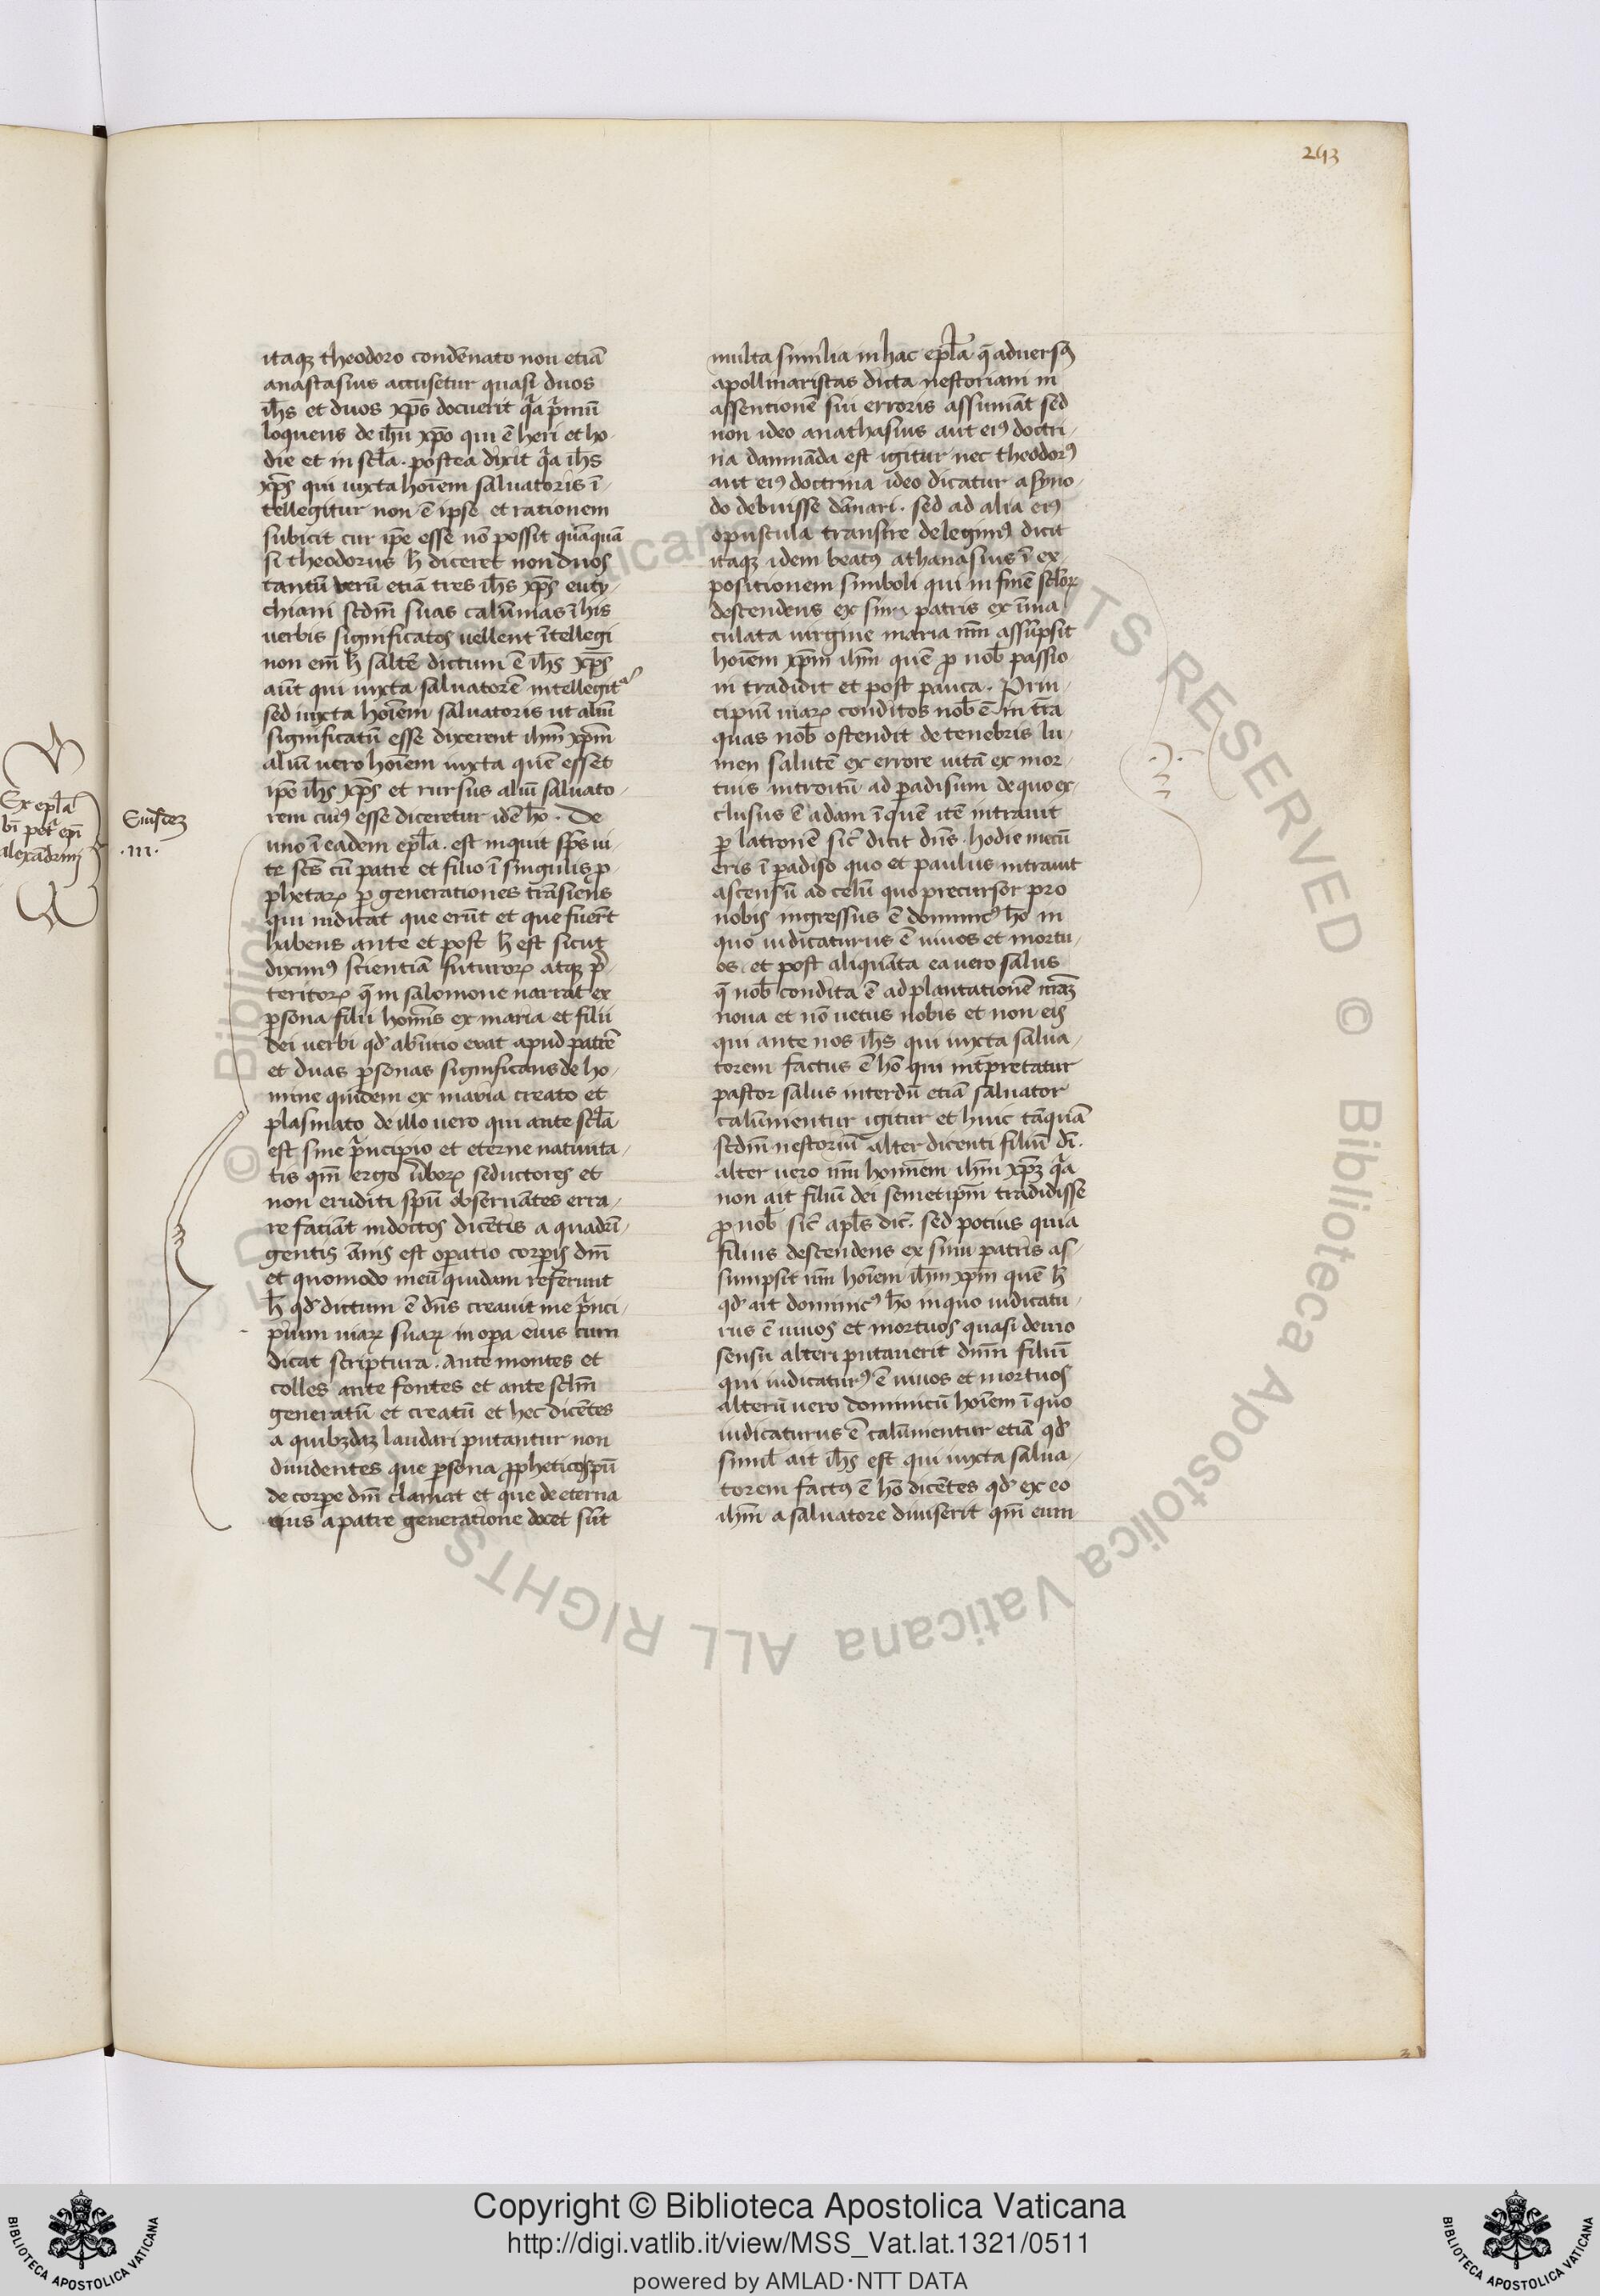 293
itaqȝ theodoro condēnato non etiā
anastasius accusetur quasi duos
ih̄s et duos xp̄s docuerit qͣa pͥmū
loquens de ih̄u xp̄o qui ē heri et ho-
die et in scl̄a. postea dixit qͣa ih̄s
xp̄s qui iuxta hoīem saluatoris ī-
tellegitur non ē ipse et rationem
subicit cur ip̄e esse nō possit quāquā
si theodorus h̄ diceret non duos
tantū verū etiā tres ih̄s xp̄s euty-
chiani scd̄m suas calūnias ī his
uerbis significatos uellent ītellegi
non em̄ h̄ saltē dictum ē ih̄s xp̄s
aūt qui iuxta saluatorē intellegit᷑
sed iuxta hoīem saluatoris ut aliū
significatū esse dixerent ih̄m xp̄m
aliū uero hoīem iuxta quē esset
ip̄e ih̄s xp̄s et rursus aliū saluato-
rem cuiꝰ esse diceretur idē h̄o. De
uno ī eadem epl̄a. est inquit sp̄s ui-
te sc̄s cū patre et filio ī singulis ꝓ-
phetaꝝ ꝑ generationes trāsiens
qui inditat que erūt et que fuerūt
habens ante et post h̄ est sicut
diximꝰ scientiā futuroꝝ atqȝ p̄-
teritoꝝ q̄ in salomone narrat ex
ꝑsona filii homīs ex maria et filii
dei uerbi qd̓ ab initio erat apud patrē
et duas ꝑsonas significans de ho-
mine quidem ex maria creato et
plasmato de illo uero qui ante scl̄a
est sine pͥncipio et eterne natiuita-
tis qm̄ ergo v̄boꝝ seductores et
non eruditi sp̄u obseruātes erra-
re faciāt indoctos dicētis a quadrī-
gentis ānis est oꝑatio corꝑis dn̄i
et quomodo meū quidam referunt
h̄ qd̓ dictum ē dn̄s creauit me pͥnci-
pium uiaꝝ suaꝝ in oꝑa eius cum
dicat scriptura. ante montes et
colles ante fontes et ante sclm̄
generatū et creatū et hec dicētes
a quibȝdaȝ laudari putantur non
diuidentes que ꝑsona ꝓpheticosp̄u
de corꝑe dn̄i clamat et que de eterna
eius a patre generatione docet sūt
Eiusdeȝ
.III.
Ex epl̄a
bī petͥ ep̄i
alexādrinj
multa similia in hac epl̄a q̄ aduersꝰ
apollinaristas dicta nestoriani in
assentionē sui erroris assumāt sed
non ideo anathasius aut eiꝰ doctri-
na damnāda est igitur nec theodorꝰ
aut eiꝰ doctrina ideo dicatur a syno-
do debuisse dānari. sed ad alia eiꝰ
opuscula transire delegimꝰ dicit
itaqȝ idem beatꝰ athanasius ī ex-
positionem simboli qui in finē scl̄oꝝ
descendens ex sinu patris ex īma-
culata uirgine maria nrm̄ assūpsit
hoīem xp̄m ih̄m quē ꝓ nob̄ passio-
ni tradidit et post pauca. Prin-
cipiū uiaꝝ conditos nob̄ ē in tr̄a
quas nob̄ ostendit de tenebris lu-
men salutē ex errore uitā ex mor-
tuis introitū ad ꝑadisum de quo ex-
clusus ē adam ī quē itē intrauit
ꝑ latronē sic̄ dicit dn̄s. hodie mecū
eris ī ꝑadiso quo et paulus intrauit
ascensū ad celū quo precursor pro
nobis ingressus ē dominicꝰ h̄o in
quo iudicaturus ē uiuos et mortu-
os. et post aliquāta ea uero salus
q̄ nob̄ condita ē ad plantationē nr̄aȝ
noua et nō uetus nobis et non eis
qui ante nos ih̄s qui iuxta salua-
torem factus ē hō qui int̄pretatur
pastor salus interdū etiā saluator
calūnientur igitur et huic tāquā
scd̄m nestoriū alter dicenti filiū dī.
alter uero nrm̄ homīnem ih̄m xp̄ȝ qͣa
non ait filiū dei semetip̄m tradidisse
ꝓ nob̄ sic̄ apl̄s dic̄. sed potius quia
filius descendens ex sinu patris as-
sumpsit nrm̄ hoīem ih̄m xp̄m quē h̄
qd̓ ait dominicꝰ h̄o in quo iudicatu-
rus ē uiuos et mortuos quasi demo
sensu alteri putauerit dn̄m filiū
qui iudicaturꝰ ē uiuos et mortuos
alterū uero dominicū hoīem ī quo
iudicaturus ē calūnientur etiā qd̓
simil̄ ait ih̄s est qui iuxta salua-
torem factꝰ ē hō dicētes qd̓ ex eo
ih̄m a saluatore diuiserit qm̄ eum
Copyright © Biblioteca Apostolica Vaticana
http://digi.vatlib.it/view/MSS_Vat.lat.1321/0511
powered by AMLAD·NTT DATA
BIBLIOTECA APOSTOLICA VATICANA
BIBLIOTECA APOSTOLICA VATICANA